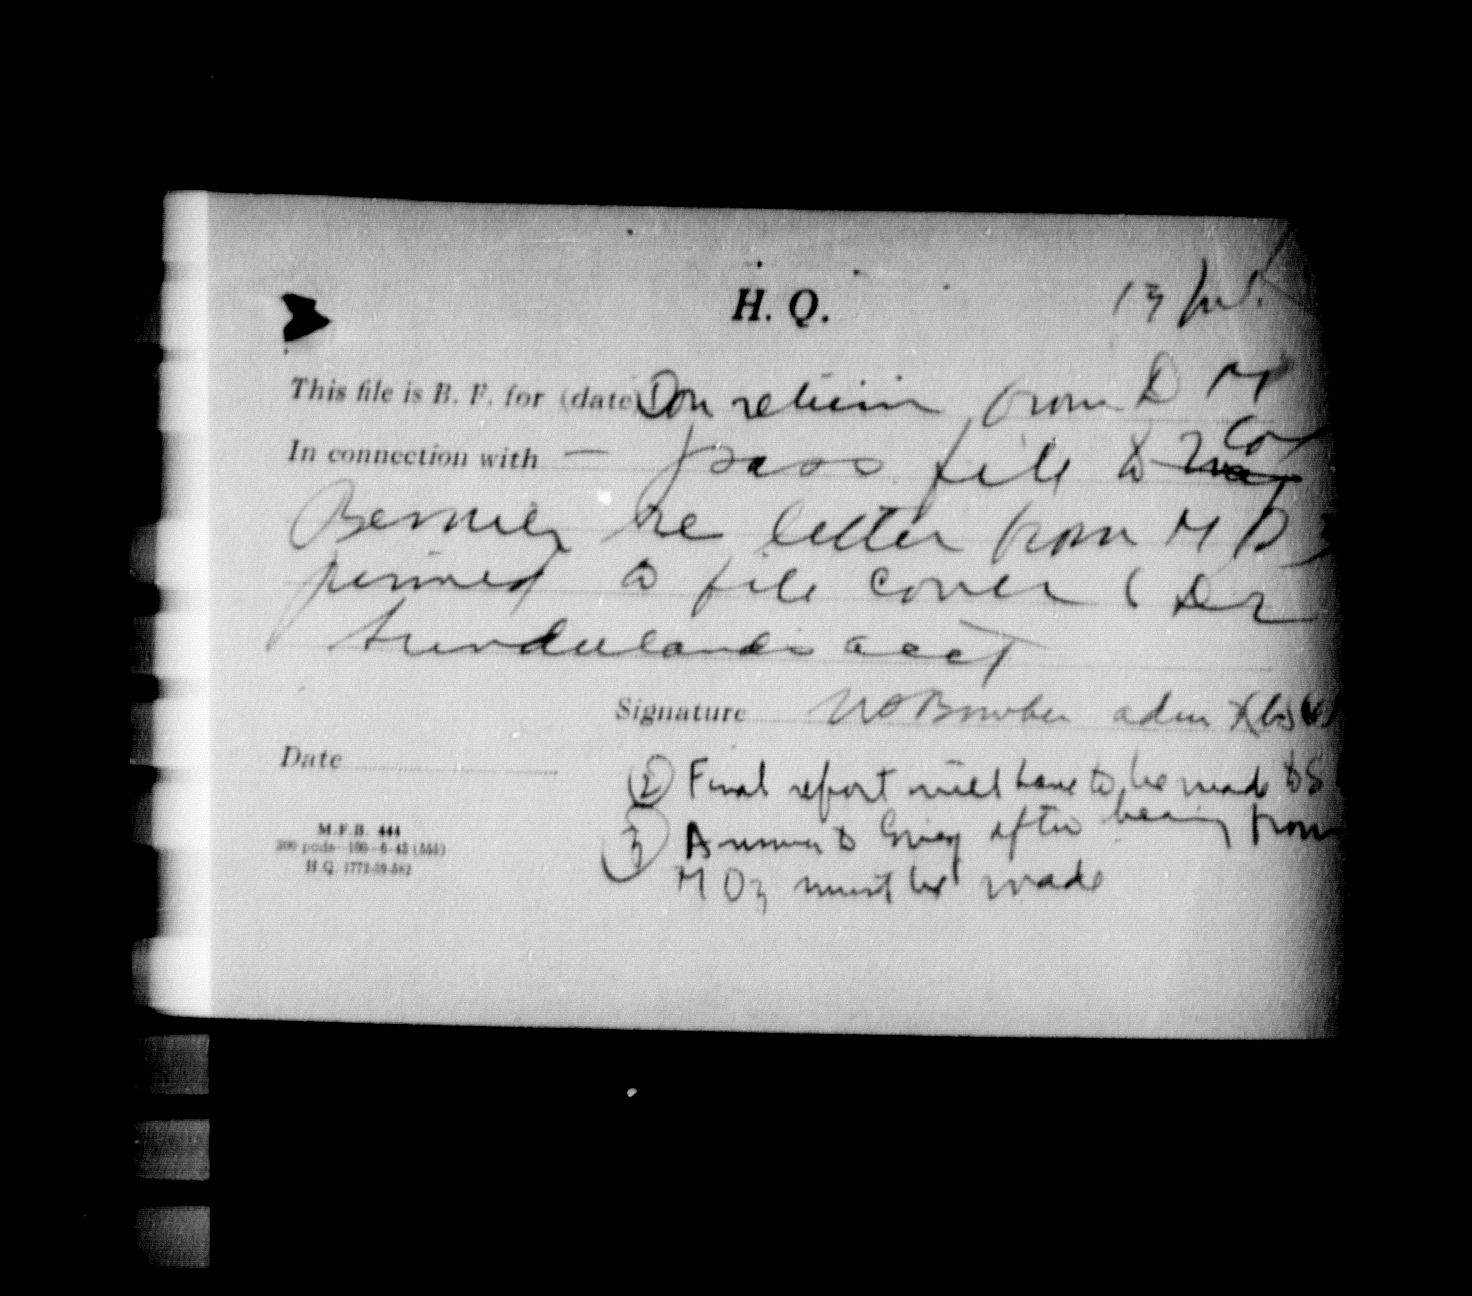 H. Q.
13
This file is B. F. for (date) ① on return from D M
In connection with – pass file to Col
Bernier re letter from M D 3
pinned to file cover ( Dr
Sunderlands acct
Signature Bowber adm
② Final report will have to be made to S
Date
③ Answer to after hearing from
M.F.B. 444
200 pads—100—6-43 (555)
M D 3 must be made
H.Q. 1772-39-582